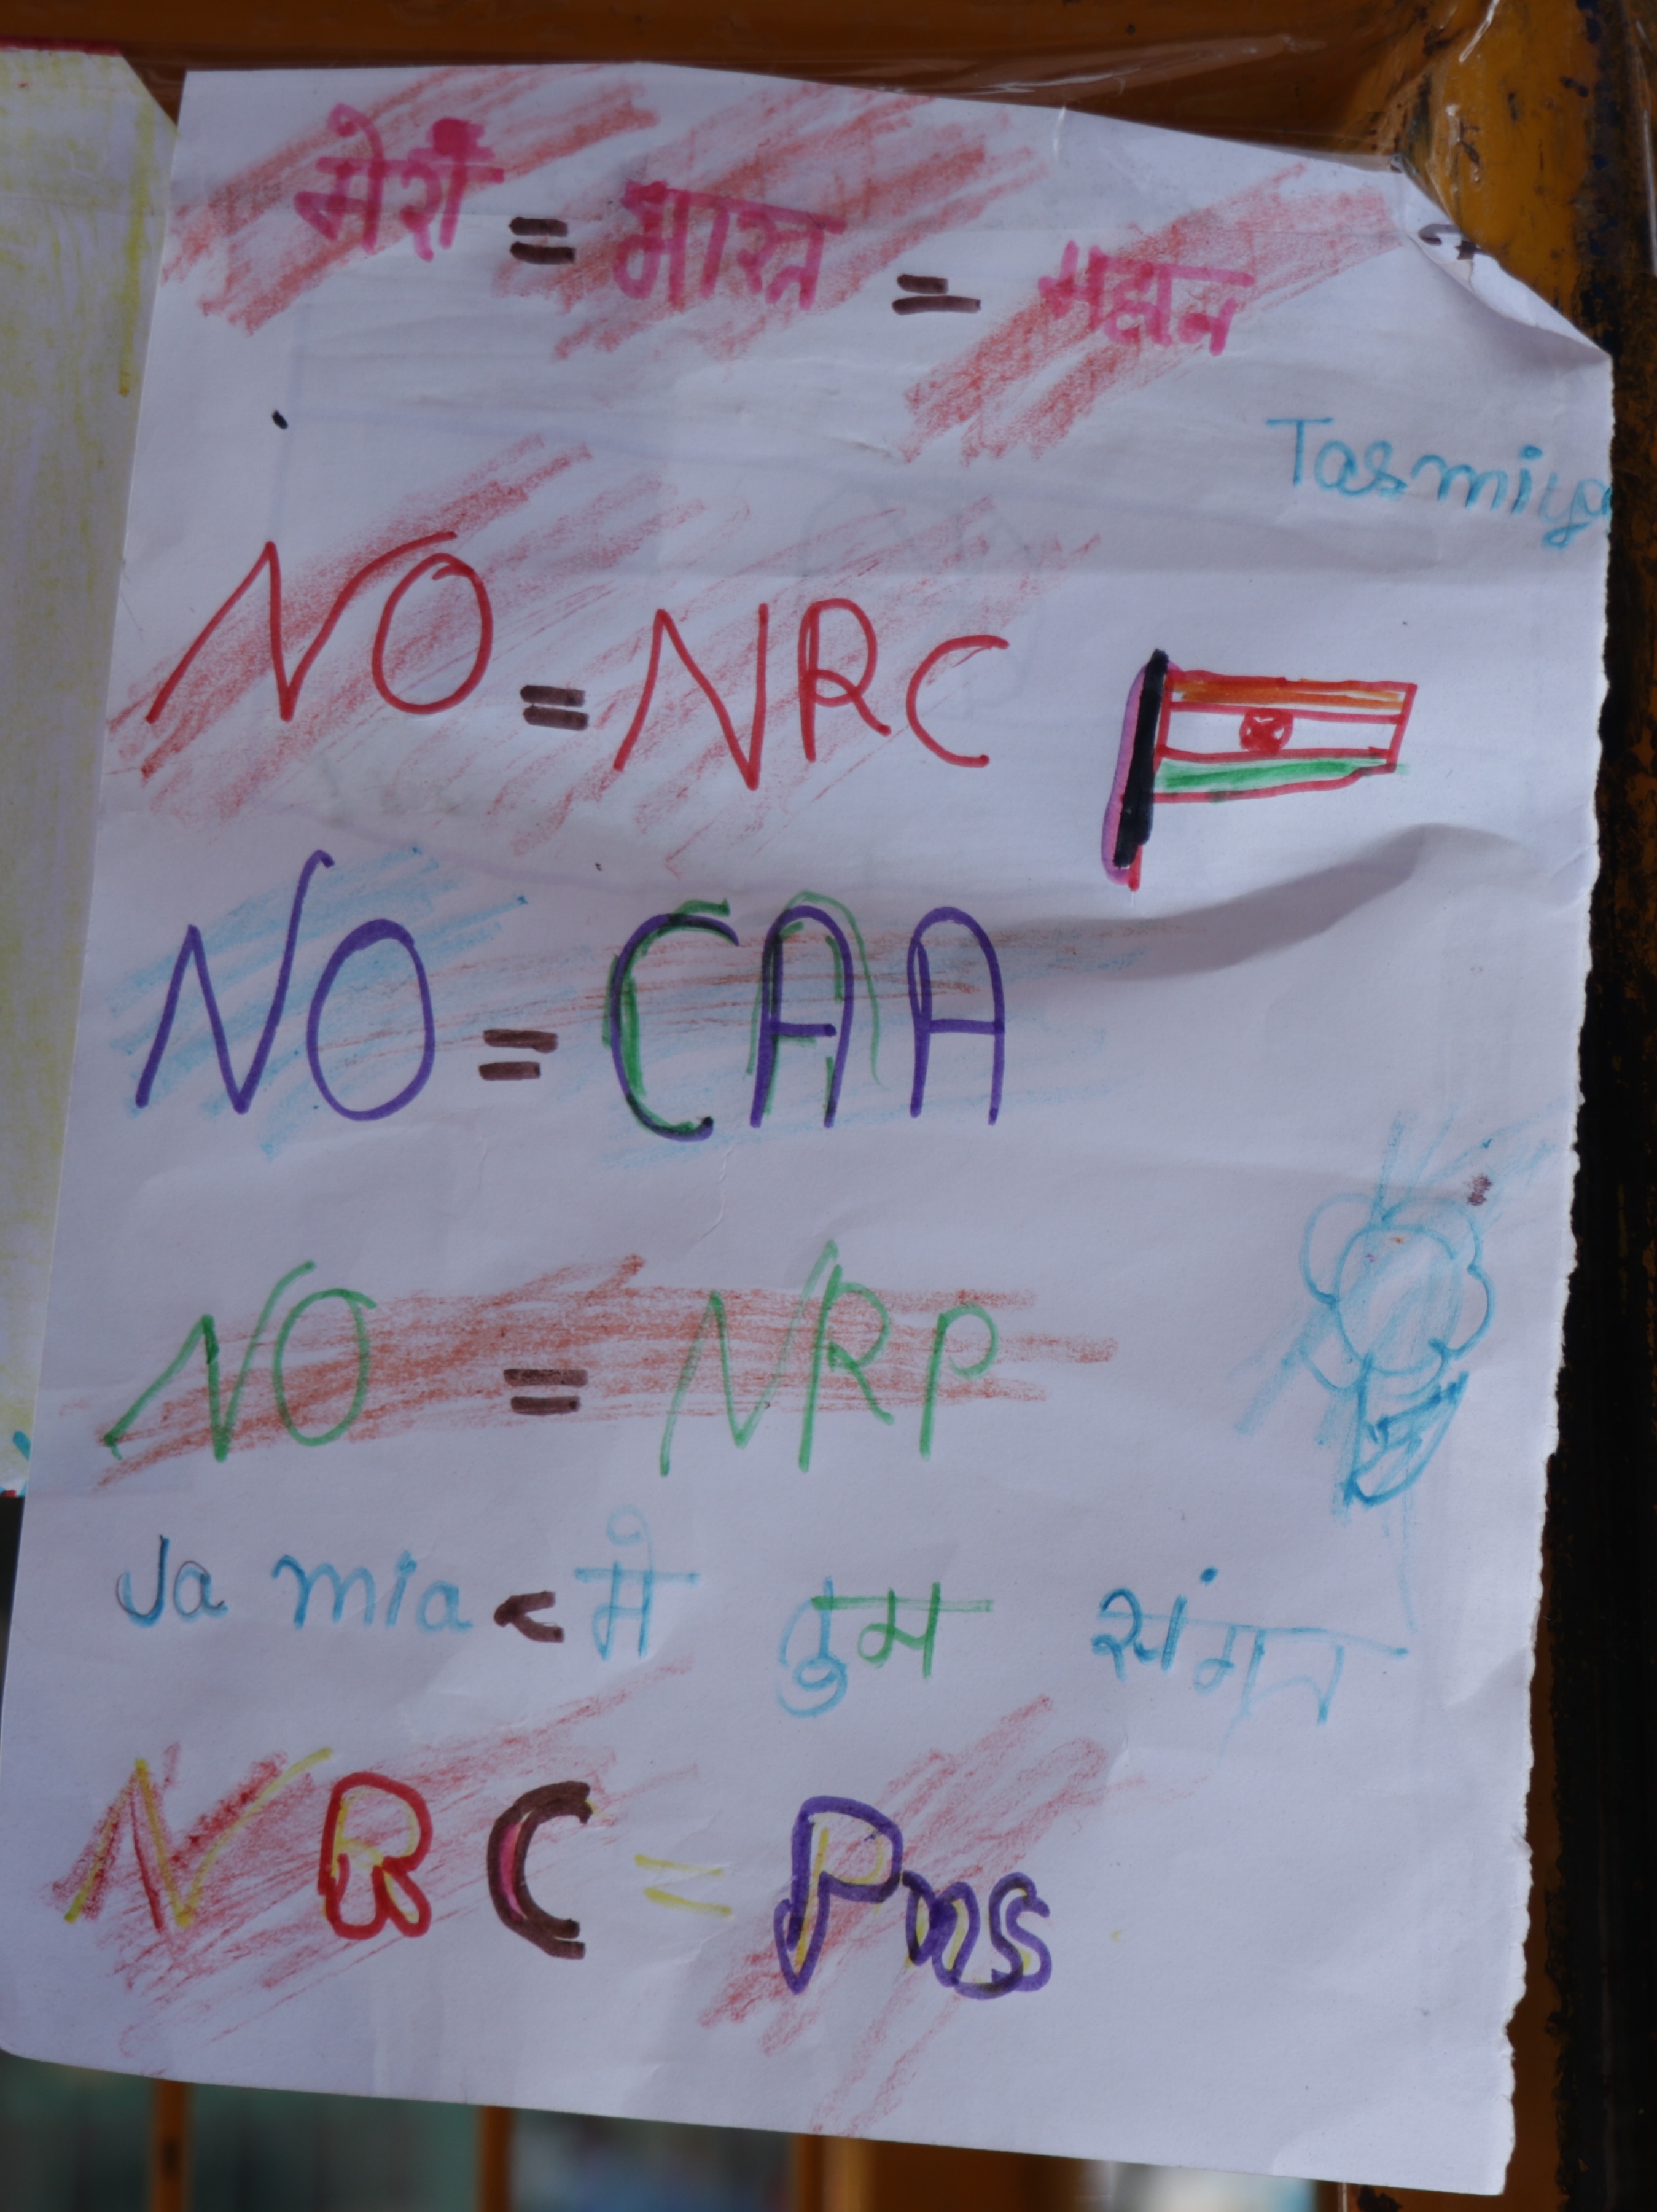 मेराँ = भारत = महान
Tasmiya
NO = NRC
NO = CAA
NO = NRP
Jamia < में तुम संगत
NRC = Pns